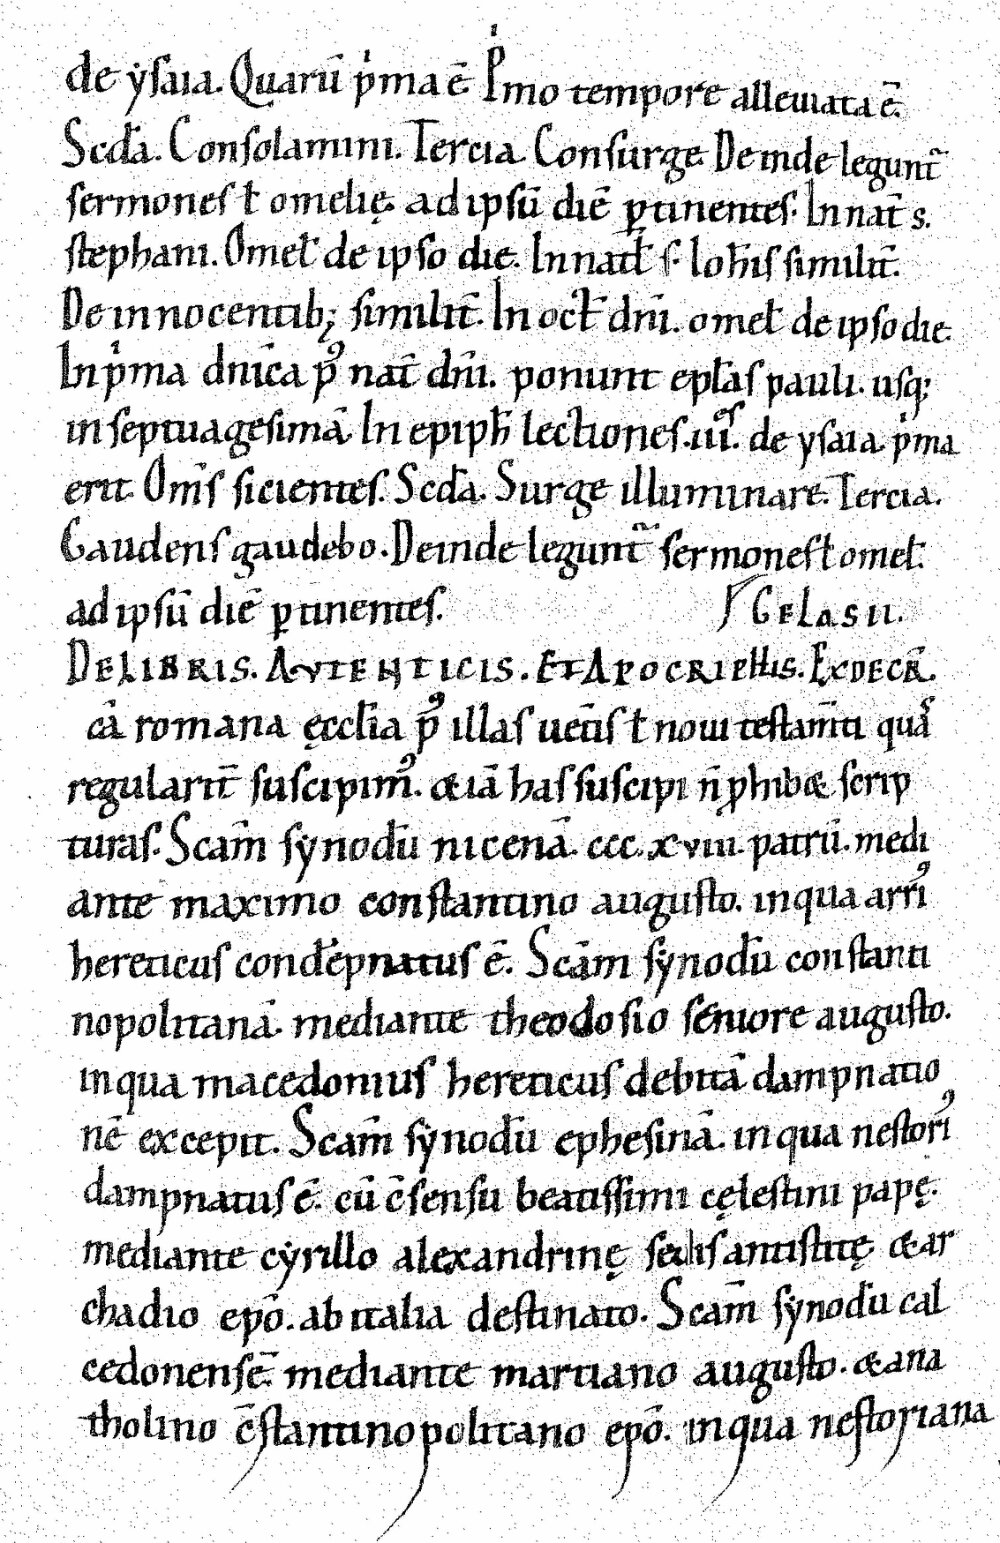 de ẏsaia. Quarū pͥma ē. Pͥmo tempore alleuiata ē.
Scđa. Consolamini. Tercia. Consurge. Deinde legunt᷑
sermones ł omelię ad ipsū diē ꝑtinentes. In nat̄ s.
stephani. Omeł de ipso die. In natł s. Ioħis similit̄.
De innocentibꝫ similit̄. In oct̄ dn̄i. omeł de ipso die.
In pͥma dn̄ica pꝰ nat̄ dn̄i. ponunt epłas pauli. usqꝫ
in septuagesimā. In epipħ lectiones .iiiᵒʳ. de ysaia. pͥma
erit. Om̄s sicientes. Scđa. Surge illuminare. Tercia.
Gaudens gaudebo. Deinde legunt᷑ sermones ł omeł
ad ipsū diē ꝑtinentes. GELASII.
DE LIBRIS. AVTENTICIS. ET APOCRIPHIS. EX DECR̄.
cā romana ęcclīa pꝰ illas uet̄is ł noui testam̄ti quaͣ
regularit̄ suscipimꝰ. &iā has suscipi n̄ ꝓhib& scrip
turas. Scam̄ sẏnodū nicenā. ccc. xviii. patrū. medi
ante maximo constantino augusto. in qua arriꝰ
hereticus condēpnatus ē. Scam̄ sẏnodū constanti
nopolitanā. mediante theodosio seniore augusto.
in qua macedonius hereticus debitā dampnatio
nē excepit. Scam̄ sẏnodū ephesinā. in qua nestoriꝰ
dampnatus ē. cū c̄sensu beatissimi cęlestini papę.
mediante cẏrillo alexandrinę sedis antistitę. & ar
chadio epō. ab italia destinato. Scam̄ sẏnodū cal
cedonensē mediante martiano augusto. & ana
tholino c̄stantinopolitano epō. in qua nestoriana